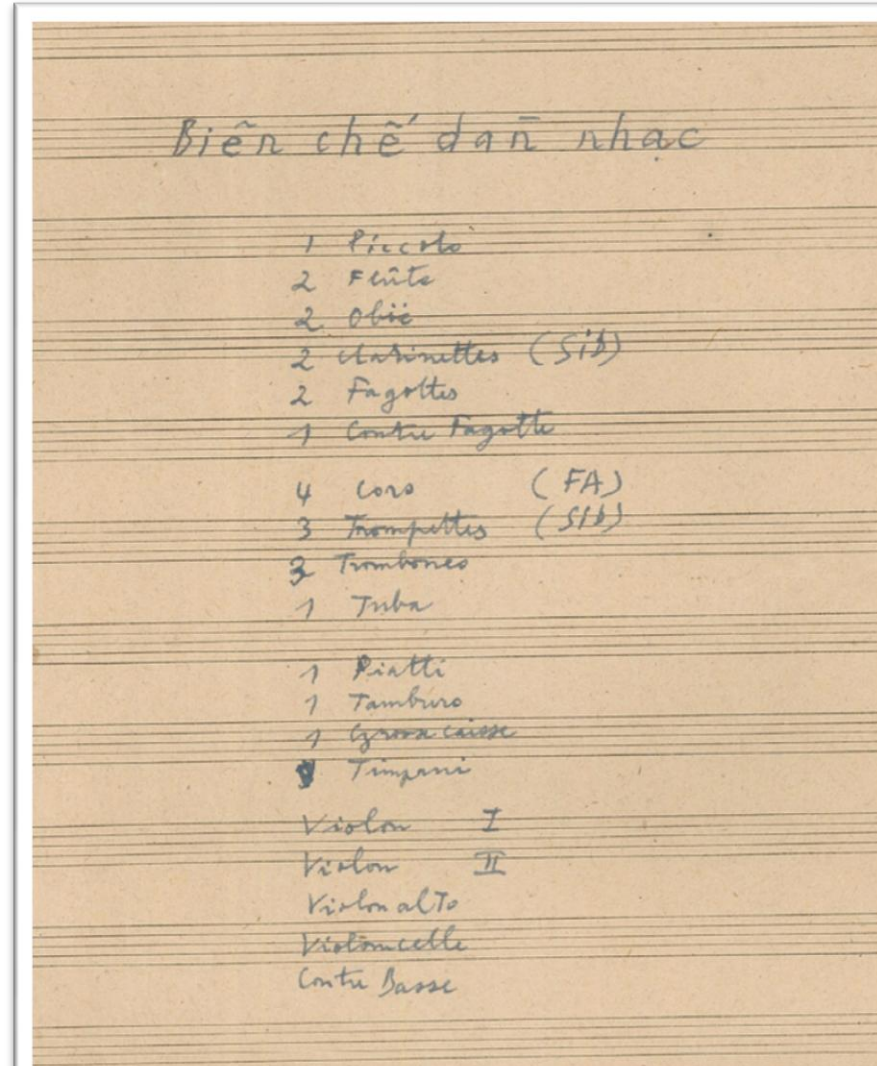 Biên chế dàn nhạc
1 Piccolo
2 Flûte
2 Oboè
2 Clarinettes (Sib)
2 Fagottes
1 Contre Fagotte
4 Coro (FA)
3 Trompettes (SIb)
3 Trombones
1 Tuba
1 Piatti
1 Tamburo
1 Grossa caisse
Timpani
Violon I
Violon II
Violon alto
Violoncelle
Contre Basse